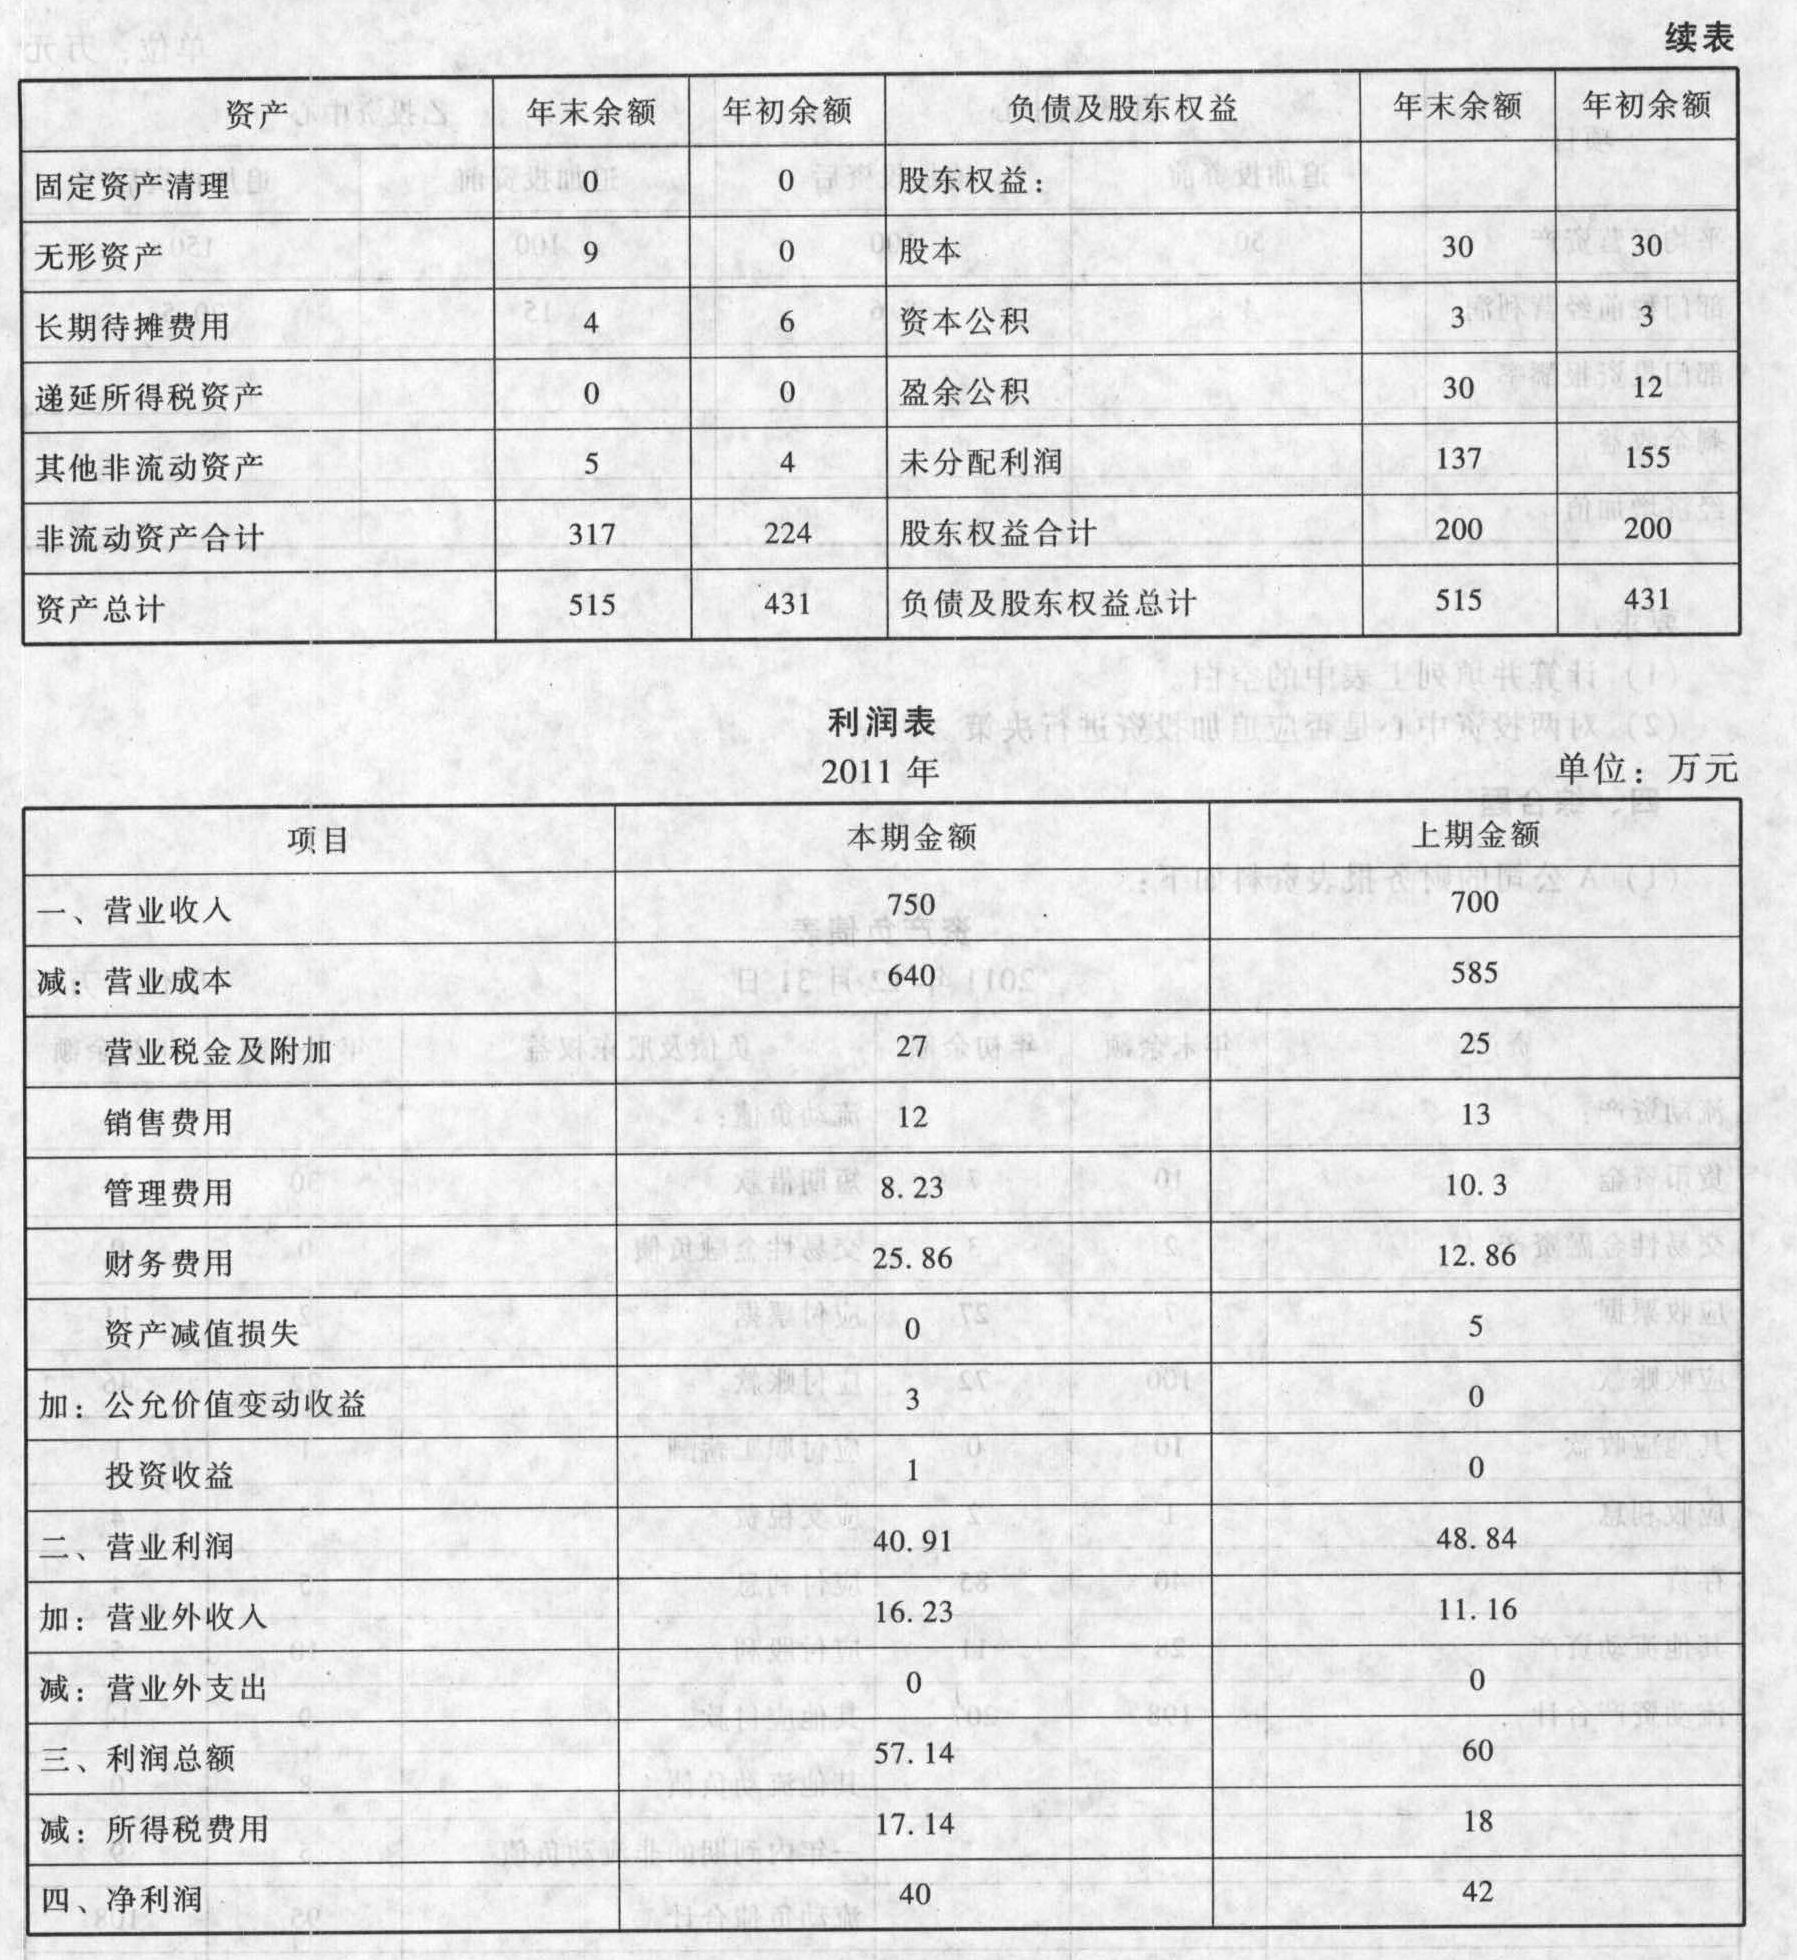 续表
资产 年末余额 年初余额 负债及股东权益 年末余额 年初余额
固定资产清理 0 0 股东权益：
无形资产 9 0 股本 30 30
长期待摊费用 4 6 资本公积 3 3
递延所得税资产 0 0 盈余公积 30 12
其他非流动资产 5 4 未分配利润 137 155
非流动资产合计 317 224 股东权益合计 200 200
资产总计 515 431 负债及股东权益总计 515 431
利润表
2011 年 单位：万元
项目 本期金额 上期金额
一、营业收入 750 700
减：营业成本 640 585
营业税金及附加 27 25
销售费用 12 13
管理费用 8.23 10.3
财务费用 25.86 12.86
资产减值损失 0 5
加：公允价值变动收益 3 0
投资收益 1 0
二、营业利润 40.91 48.84
加：营业外收入 16.23 11.16
减：营业外支出 0 0
三、利润总额 57.14 60
减：所得税费用 17.14 18
四、净利润 40 42